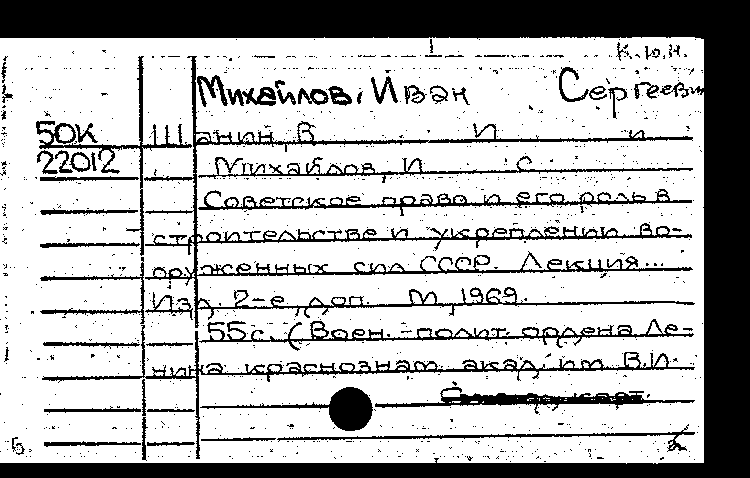 К.Ю.Н.
Михайлов, Иван Сергеевич
50К Шанин, В И и
22012 Михайлов, И С
Советское право и его роль в
строительстве и укреплении во-
оруженных сил СССР. Лекция...
Изд. 2-е, доп. М, 1969.
55с. (Воен.-полит. ордена Ле-
нина краснознам. акад. им В.И.
Б.